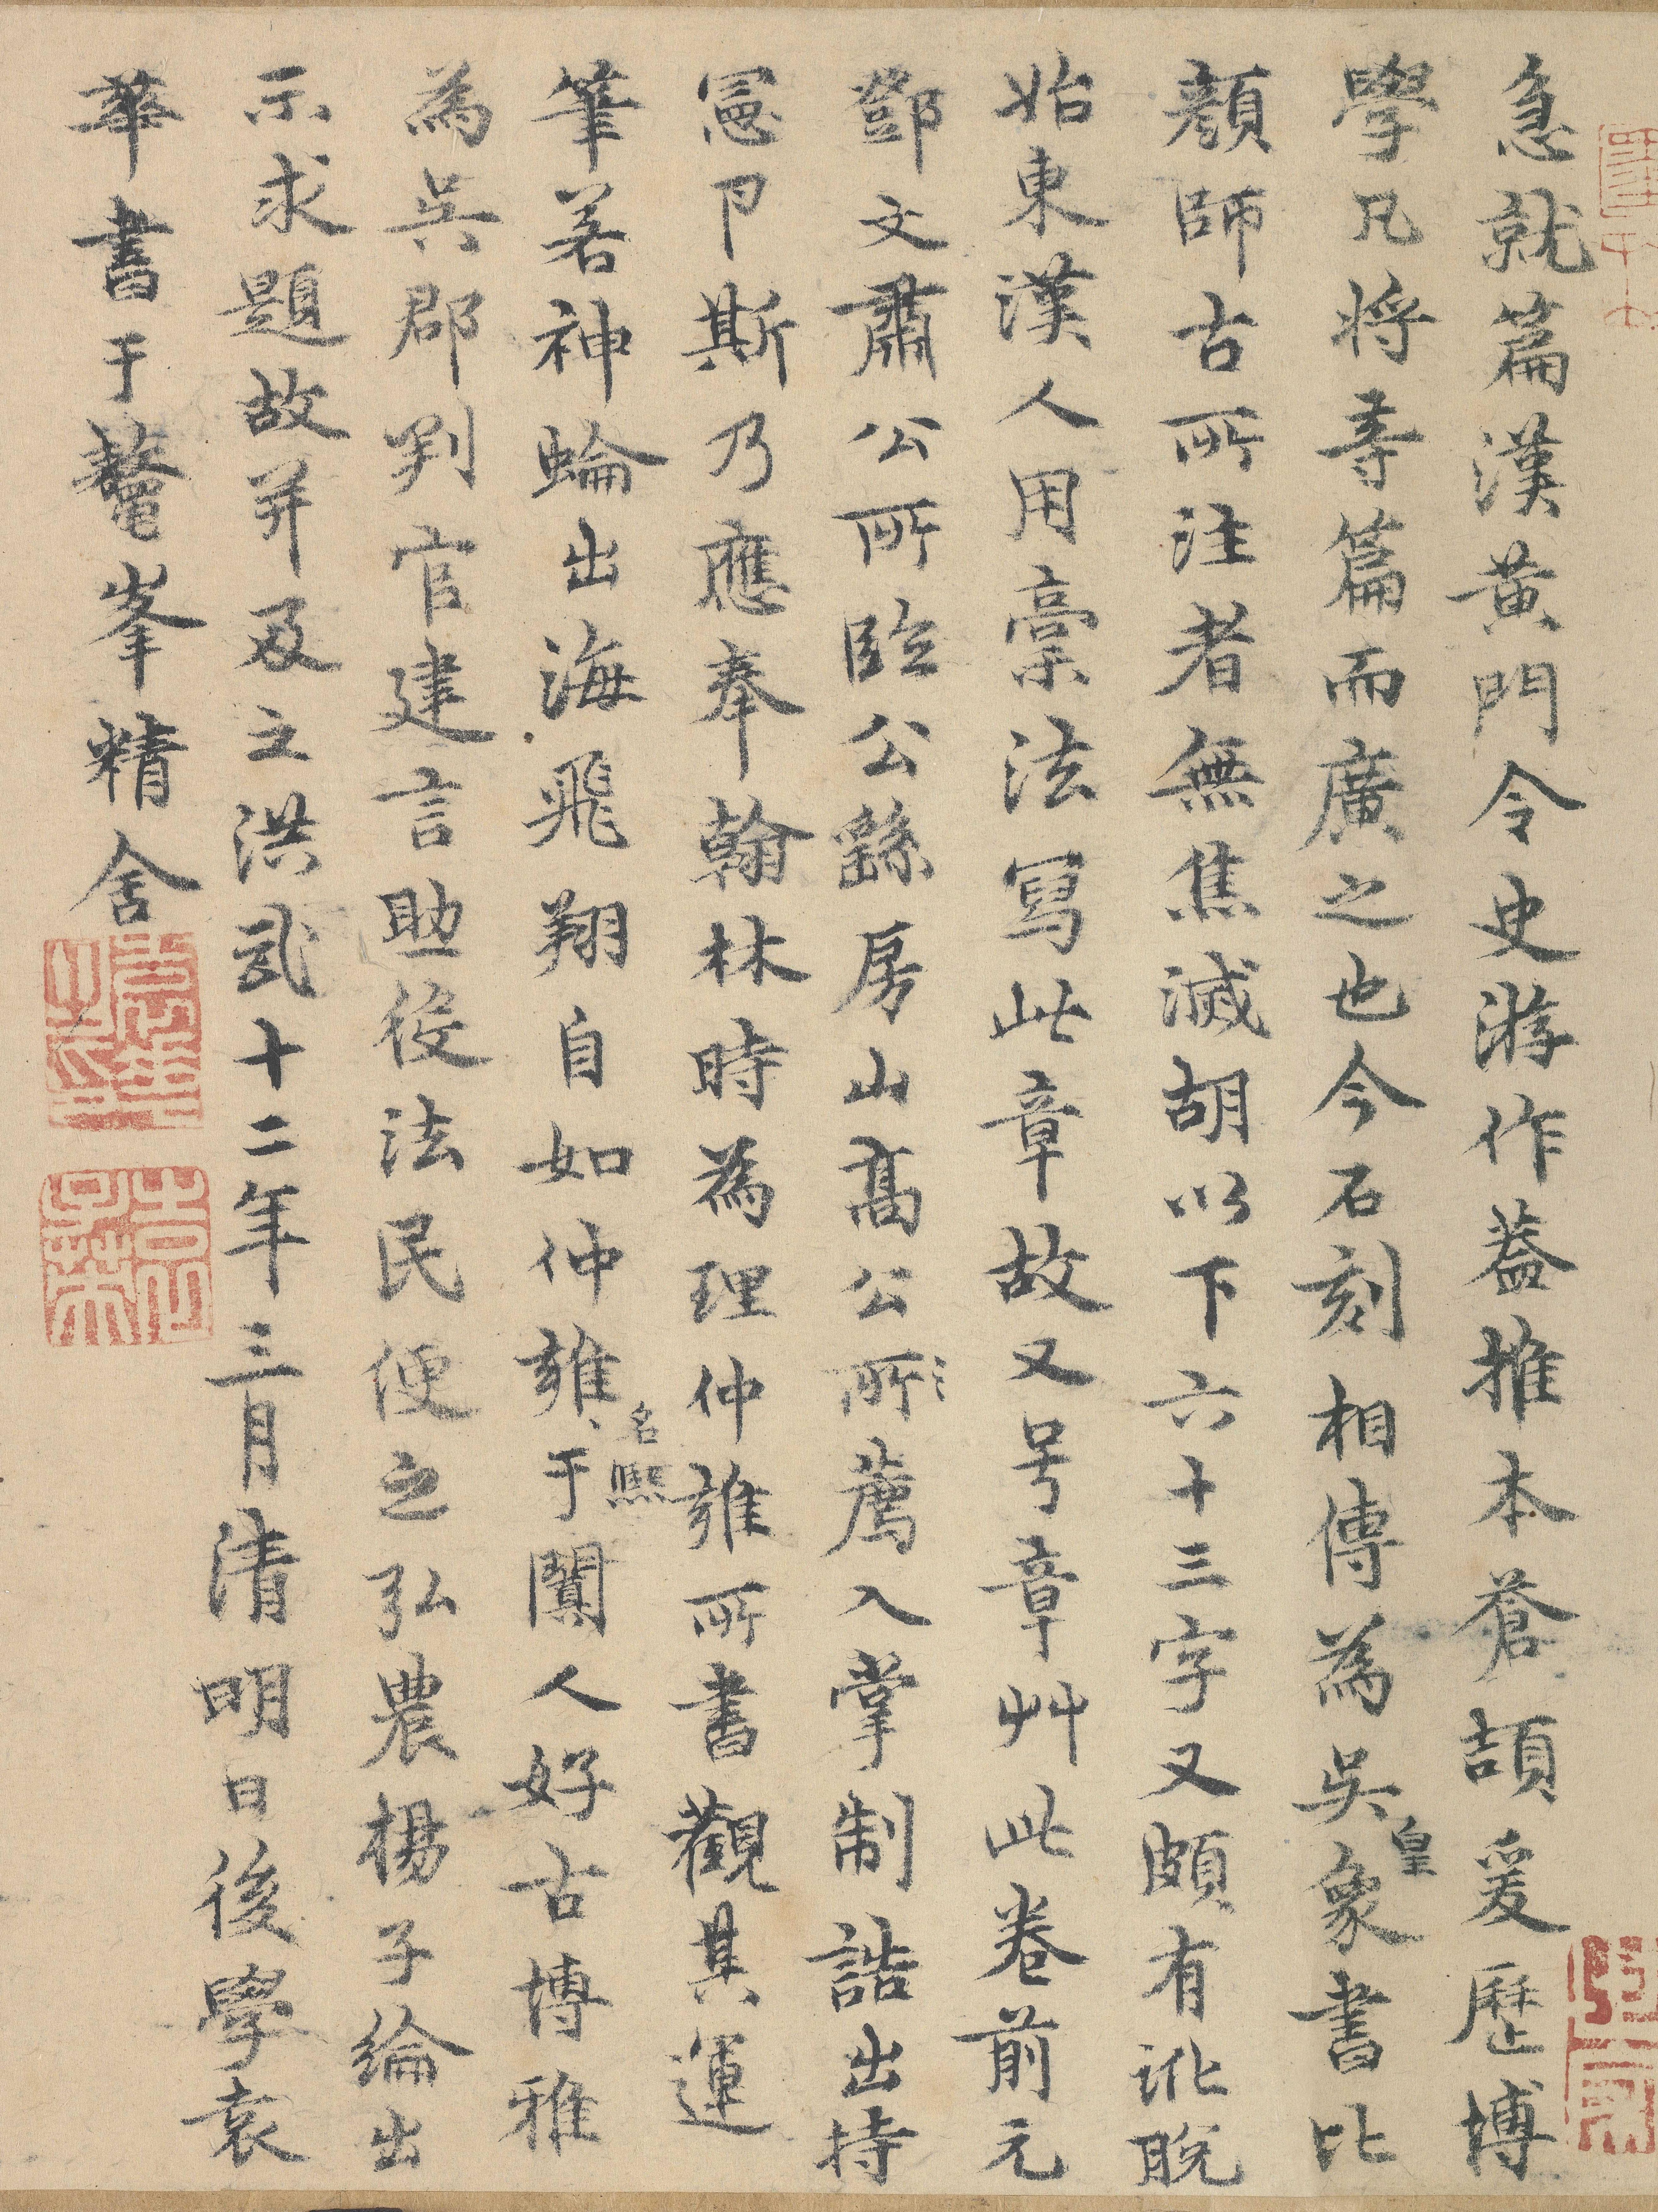 急就篇漢黃門令史游作蓋推本蒼頡爰歷博
學凡將等篇而廣之也今石刻相傳為吳皇象書比
顏師古所注者無焦滅胡以下六十三字又頗有訛脫
始東漢人用稾法寫此章故又号章艸此卷前元
鄧文肅公所臨公繇房山高公所薦入掌制誥出持
憲卪斯乃應奉翰林時為理仲雍所書觀其運
筆若神蜦出海飛翔自如仲雍名熙于闐人好古博雅
為吳郡判官建言助役法民便之弘農楊子綸出
示求題故并及之洪武十二年三月清明日後學袁
華書于鼇峯精舍